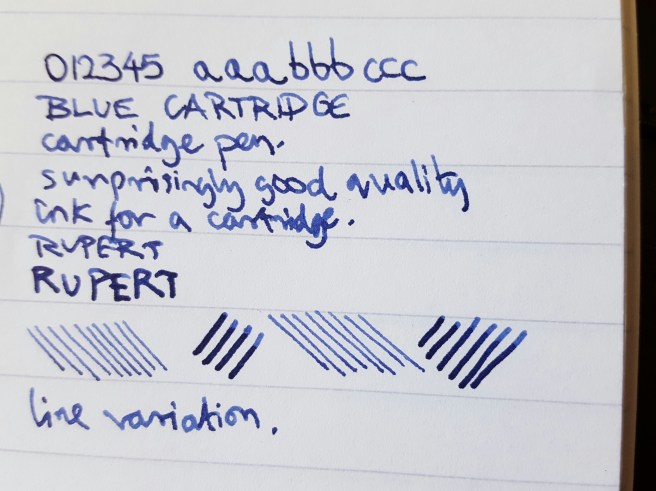 012345 aaabbbccc
BLUE CARTRIDGE
cartridge pen.
surprisingly good quality
ink for a cartridge.
RUPERT
RUPERT
line variation.